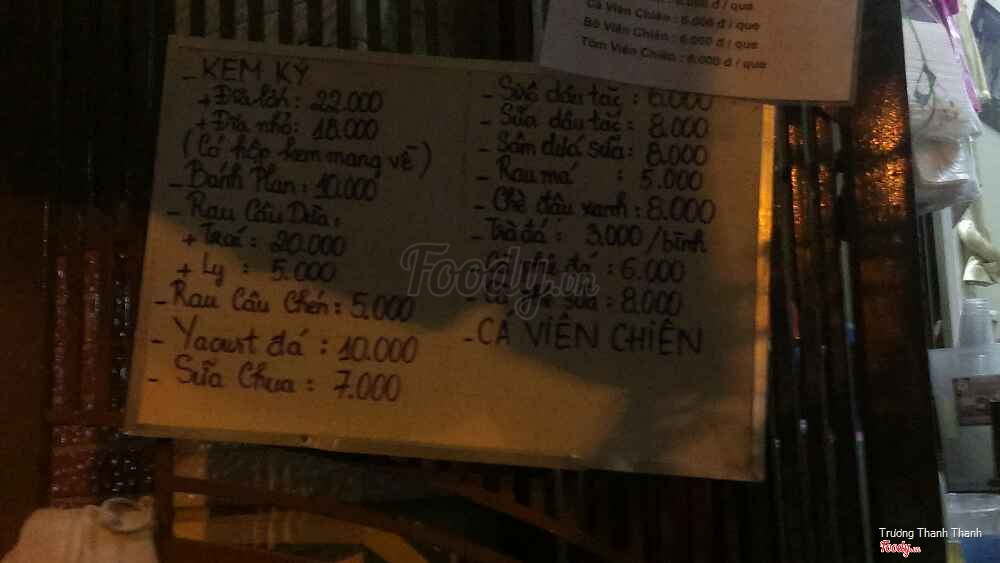 6.000 đ / que
Cá Viên Chiên : 6.000 đ / que
Bò Viên Chiên : 6.000 đ / que
Tôm Viên Chiên : 6.000 đ / que
- KEM KÝ
+ Đĩa lớn : 22.000
+ Đĩa nhỏ : 18.000
(Có hộp kem mang về)
- Bánh Plan : 10.000
- Rau Câu Dừa :
+ Trái : 20.000
+ Ly : 5.000
- Rau Câu Chén : 5.000
- Yaourt đá : 10.000
- Sữa Chua : 7.000
dâu tắc : 6.000
- Sữa dâu tắc : 8.000
- Sâm dứa sữa : 8.000
- Rau má : 5.000
- Chè đậu xanh : 8.000
- Trà đá : 3.000 /bình
- Cà phê đá : 6.000
- Cà phê sữa : 8.000
- CÁ VIÊN CHIÊN
Foody.vn
Trương Thanh Thanh
Foody.vn